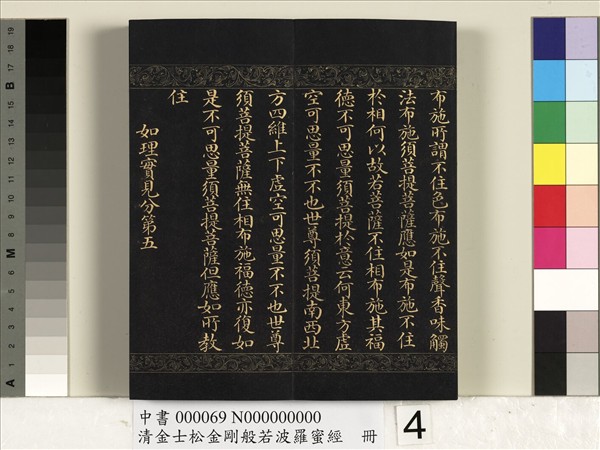 布施所謂不住色布施不住聲香味觸
法布施須菩提菩薩應如是布施不住
於相何以故若菩薩不住相布施其福
德不可思量須菩提於意云何東方虛
空可思量不不也世尊須菩提南西北
方四維上下虛空可思量不不也世尊
須菩提菩薩無住相布施福德亦復如
是不可思量須菩提菩薩但應如所教
住
如理實見分第五
中書 000069 N000000000
清金士松金剛般若波羅蜜經 冊
4
19
18
17
16
15
B
14
13
12
11
10
9
M
8
7
6
5
4
3
2
1
A